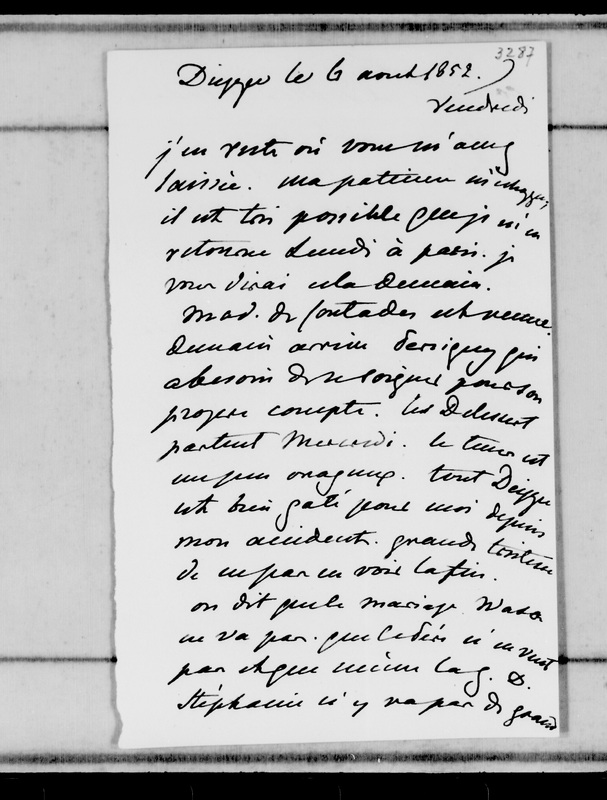 3287
Dieppe le 6 aout 1852.
Vendredi
j'en reste où vous m'avez
laissée. ma patience m'échappe,
il est très possible que je m'en
retourne Lundi à paris. je
vous dirai cela Demain.
Mad. de Contades est venue.
Demain arrive Persigny qui
a besoin de se soigner pour son
propre compte. les Delessert
partent Mercredi. le tems est
un peu orageux. tout Dieppe
est bien gaté pour moi depuis
mon accident. grande tristesse
de ne pas en voir la fin.
on dit que le mariage Wasa
ne va pas. que le père n'en veut
pas et que même la g. D.
Stéphanie n'y va pas de grand